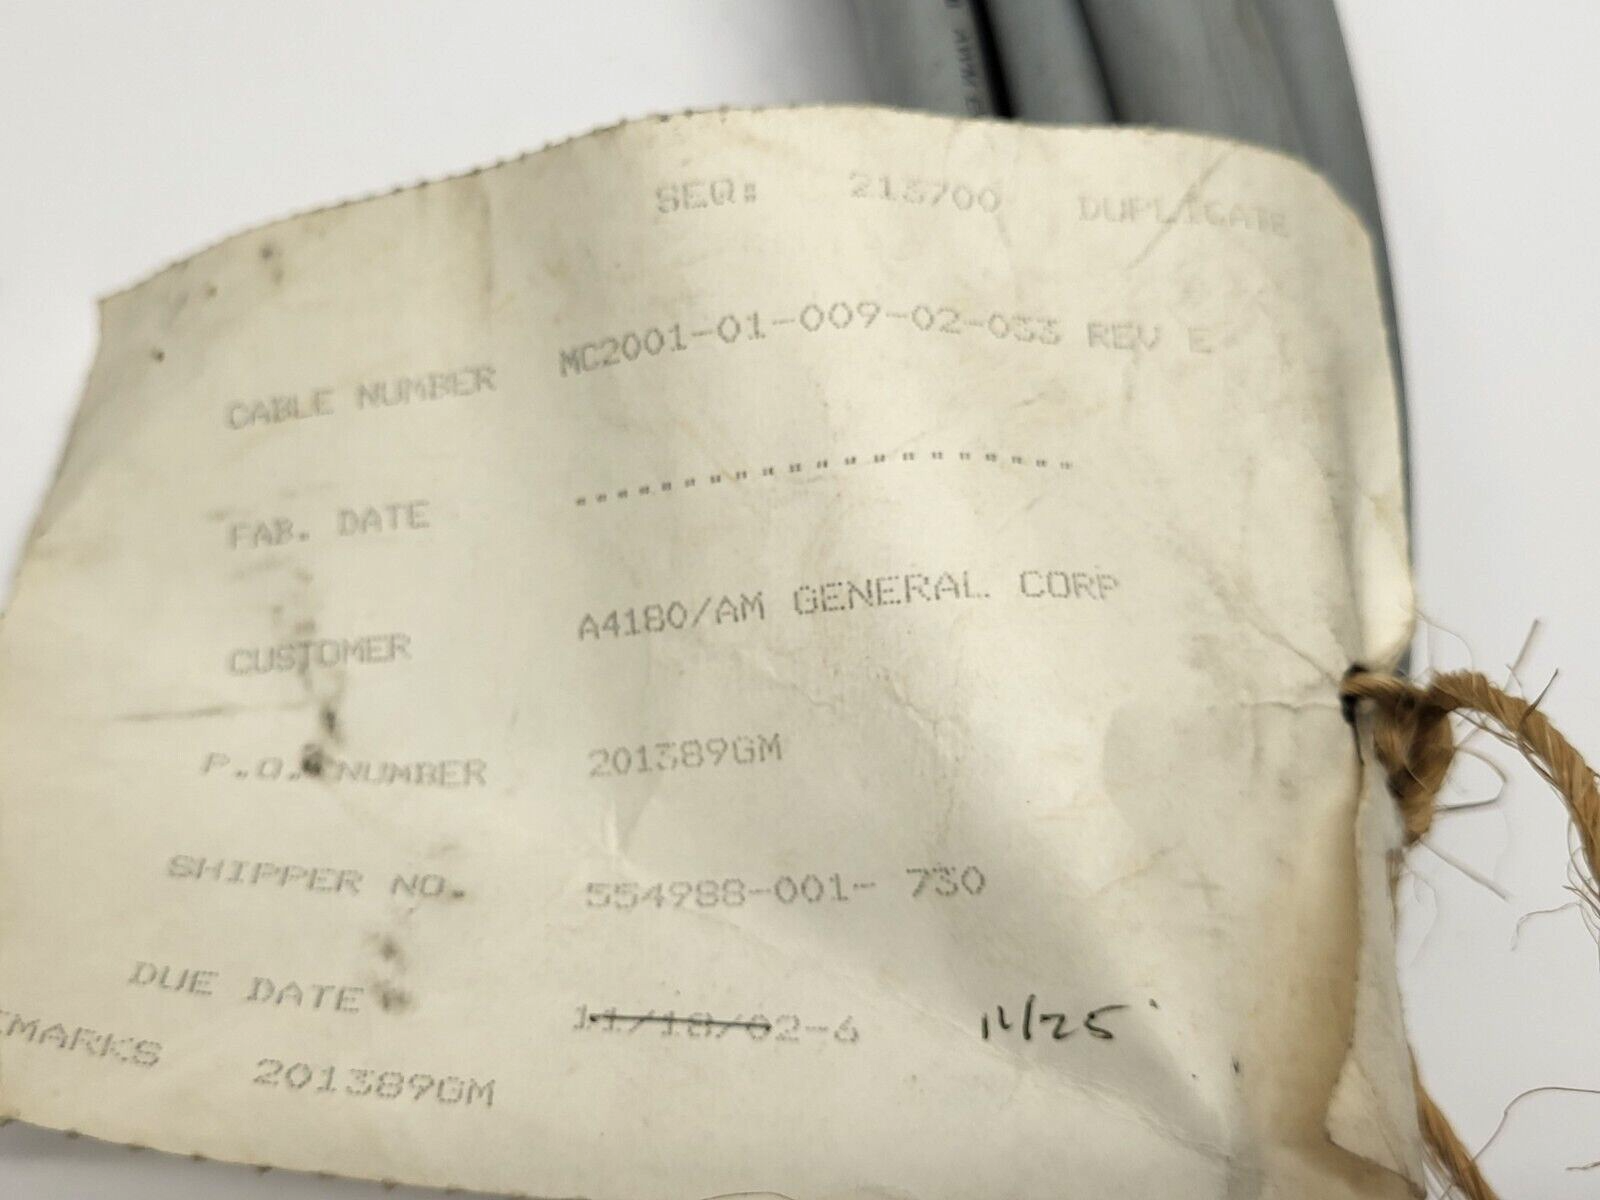 SEQ: 213700 DUPLICATE
CABLE NUMBER MC2001-01-009-02-033 REV E
FAB. DATE """""""""""""""""""
CUSTOMER A4180/AM GENERAL CORP
P.O. NUMBER 201389GM
SHIPPER NO. 554988-001- 730
DUE DATE 11/18/02-6 11/25
EMARKS 201389GM